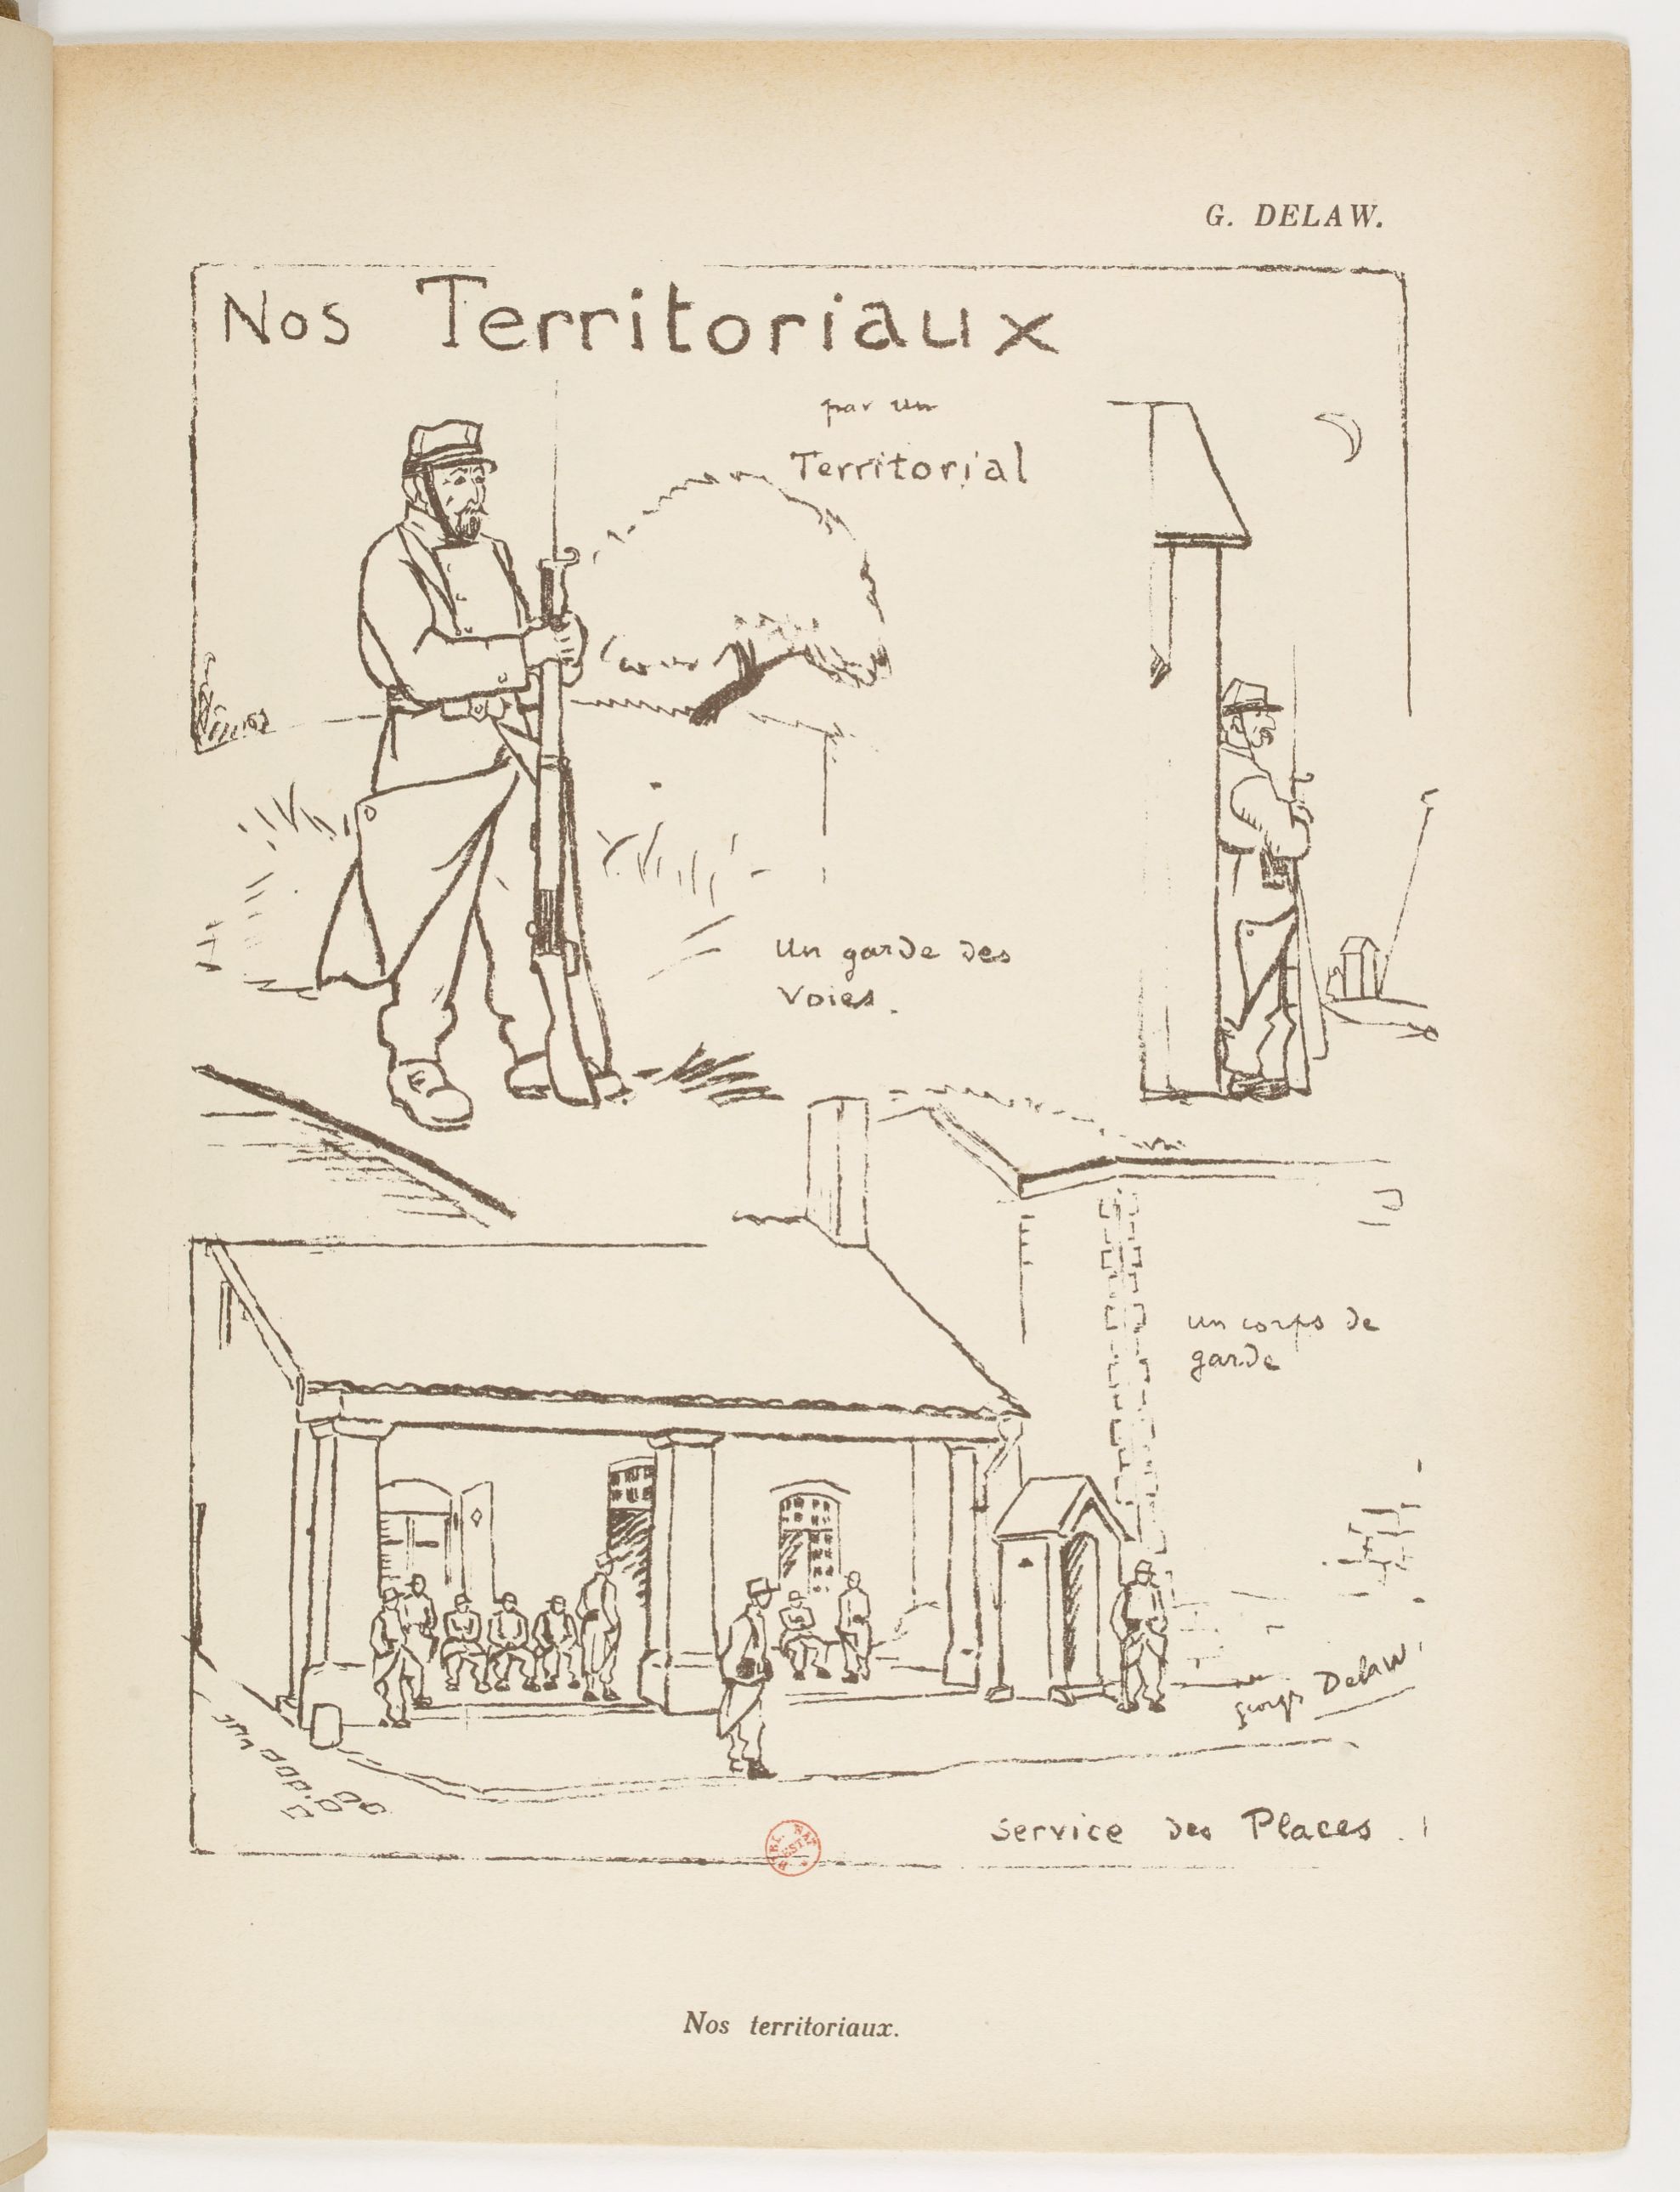 G. DELAW.
Nos Territoriaux
par un
Territorial
Un garde des
Voies.
un corps de
garde
georges Delaw
Service des Places.
Nos territoriaux.